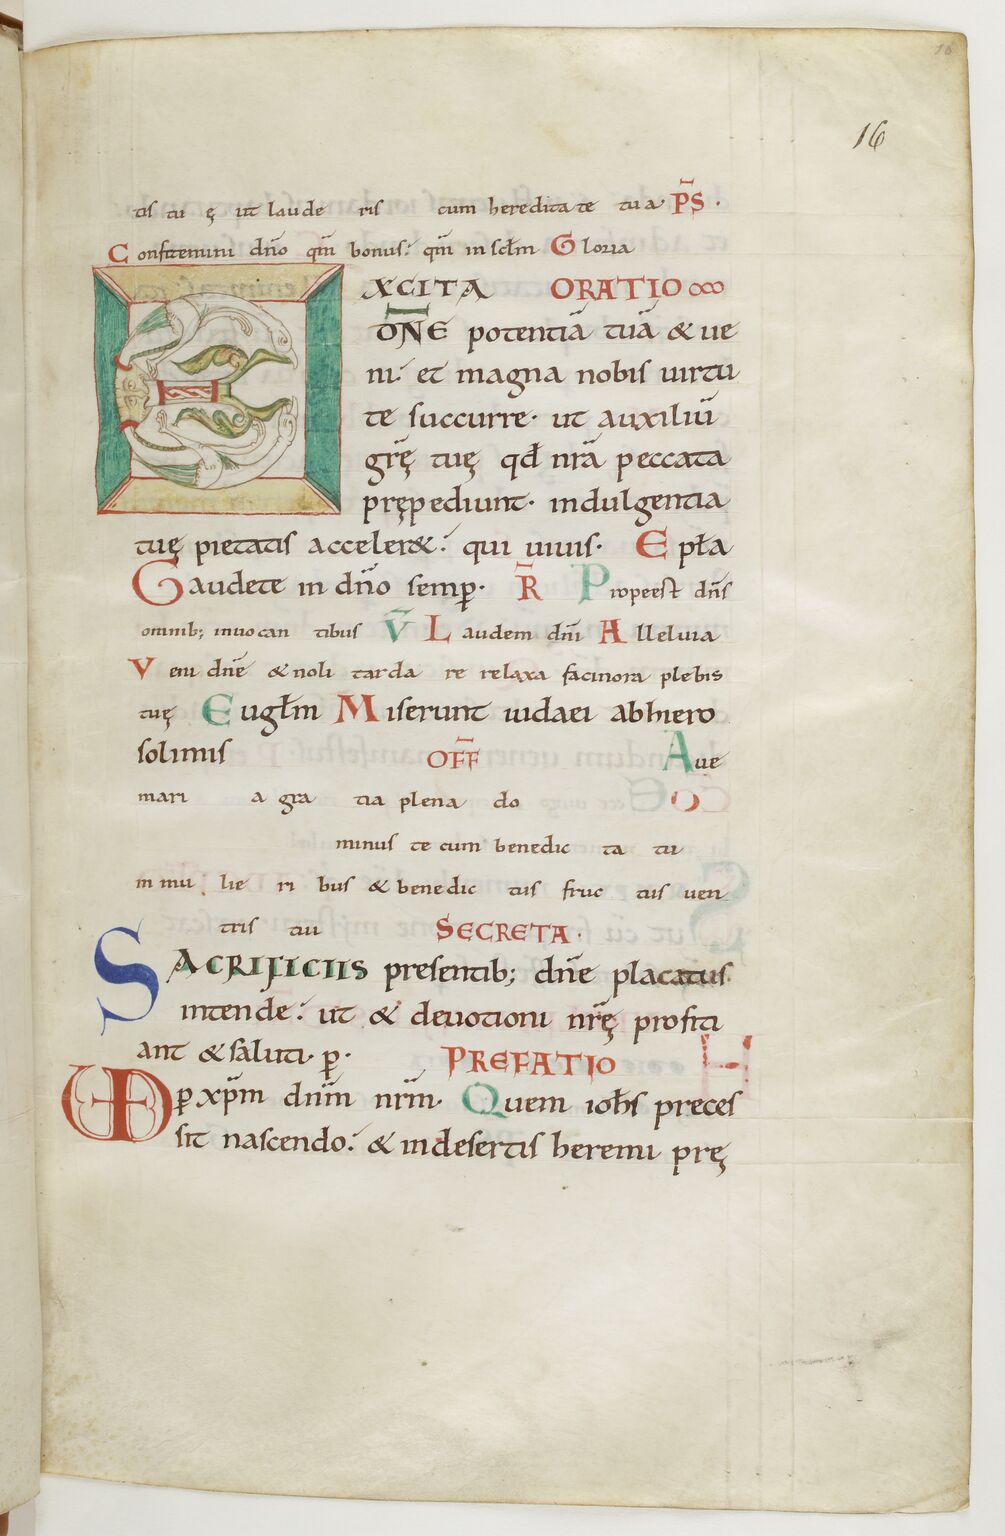 16
tis tu ę ut laude ris cum heredita te tua P̄S ·
Confitemini dn̄o qm̄ bonus: qm̄ in sclm̄ Gloria
EXCITA ORATIO
DN̄E potentiā tuā & ue
ni: et magna nobis uirtu
te succurre· ut auxiliū
gr̄ę tuę qđ nr̄a peccata
prępediunt· indulgentia
tuę pietatis acceler&: qui uiuis· Epła
Gaudete in dn̄o semp̱· R̄ Propeest dn̄s
omnib; inuocan tibus V̄ Laudem dn̄i Alleluia
Veni dn̄e & noli tarda re relaxa facinora plebis
tuę Eugłm Miserunt iudaei abhiero
solimis OF̄F Aue
mari a gra tia plena do
minus te cum benedic ta tu
in mu lie ri bus & benedic tus fruc tus uen
tris tui SECRETA·
SACRIFICIIS presentib; dn̄e placatus
intende: ut & deuotioni nr̄ę profici
ant & saluti· p̱· PREFATIO
p̱ xp̄m dn̄m nr̄m· Quem ioh̄s preces
sit nascendo: & indesertis heremi prę